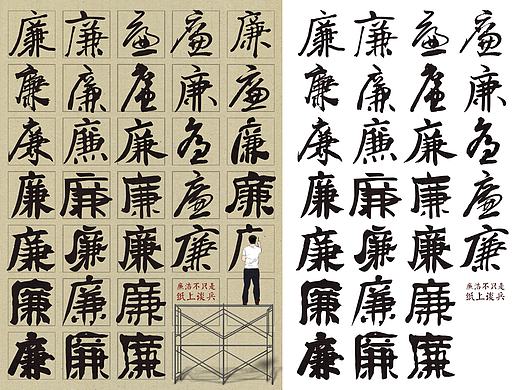 廉廉廉廉廉
廉廉廉廉廉
廉廉廉廉廉
廉廉廉廉廉
廉廉廉廉广
廉廉廉
廉洁不只是
纸上谈兵
廉廉廉
廉廉廉廉
廉廉廉廉
廉廉廉廉
廉廉廉廉
廉廉廉廉
廉廉廉
廉洁不只是
纸上谈兵
廉廉廉